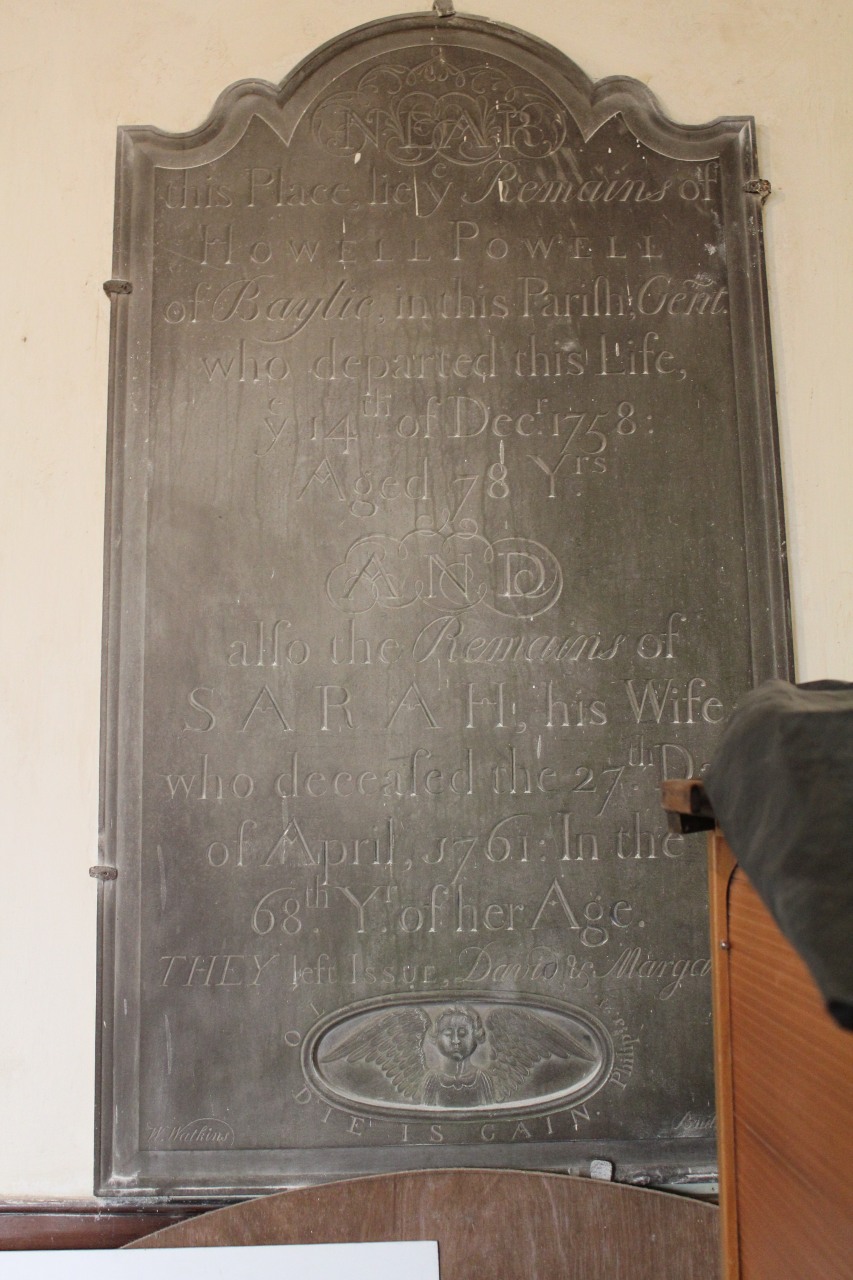 NEAR
this Place, lie yᵉ Remains of
HOWELL POWELL
of Baylie, in this Pariſh, Gent.
who departed this Life,
yᵉ 14th. of Decr. 1758:
Aged 78 Yrs.
AND
alſo the Remains of
SARAH, his Wife
who deceaſed the 27th. Da
of April, 1761: In the
68th. Yr. of her Age.
THEY left Issue, David & Marga
TO DIE IS GAIN.
Philip
W. Watkins